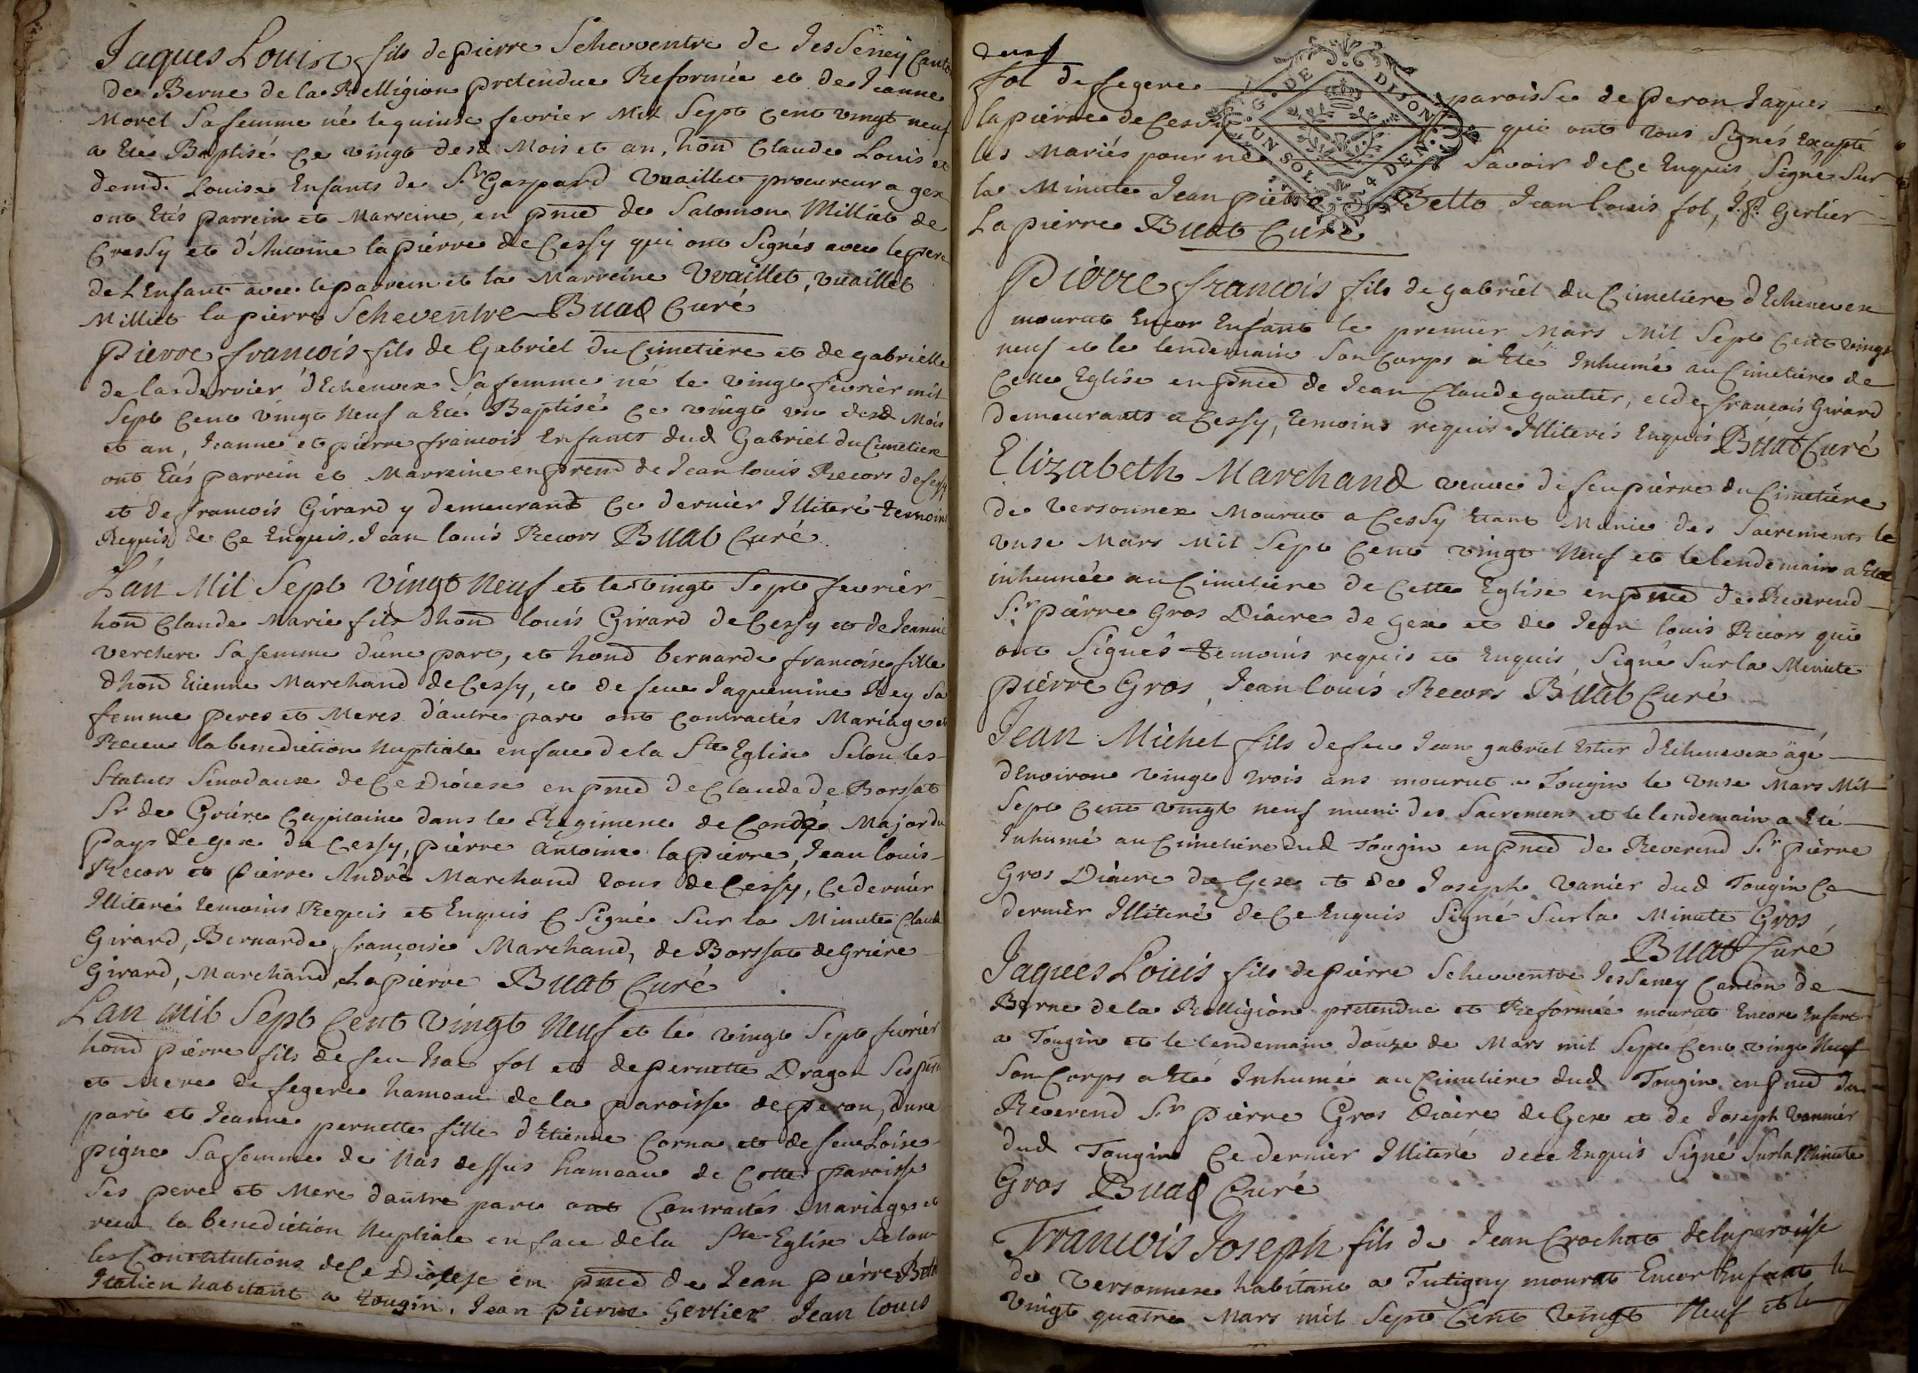 Jaques Louis fils de pierre Schevventre de Jesseney Canto
de Berne de la Relligion pretendue Reformée et de Jeanne
Morel Sa femme né le quinse fevrier Mil Sept Cent vingt neuf
a Etes Baptisé Ce vingt desd Mois et an, hond Claude Louis et
demd. Louise Enfants de Sr Gaspard Vuaillet procureur a gex
ont Etés parrein et Marreine, en pned de Salomon Milliet de
Cressy et d'Antoine lapierre de Cessy qui ont Signés avec le pere
de L'Enfant avec le parrein et la Marreine Vvaillet, vuaillet
Milliet lapierre Scheventre Buat Curé
Pierre francois fils de Gabriel du Cimetière et de gabrielle
de lard d'Echenvex Sa femme né le vingt fevrier mil
Sept Cent vingt Neuf a Eté Baptisé Ce vingt un desd Mois
et an, Jeanne et pierre francois Enfants dud Gabriel du Cimetiere
ont Etés parrein et Marreine en prend de Jean louis Recors de Cessy
et de francois Girard y demeurand Ce dernier Illiteré temoins
Requis de Ce Enquis. Jean louis Recors Buat Curé.
L'an Mil Sept vingt Neuf et le vingt Sept fevrier
hond Claude Marie fils dhond louis Girard de Cessy et de Jeanne
verchere Sa femme dune part, et hond bernarde francoise fille
dhond Etienne Marchand de Cessy, et de feue Jaquemine Rey Sa
femme peres et Meres d'autre part ont Contractés Mariage et
Receu la benediction Nuptiale en face de la Ste Eglise Selon les
Statuts Sinodaux de Ce Diocese en pned de Claude de Borssat
Sr de Griere Capitaine dans le Regiment de Condé Major du
Pays de gex de Cessy, pierre antoine lapierre, Jean louis
Recors et pierre André Marchand tous de Cessy, Ce dernier
Illiteré temoins Requis et Enquis Signé Sur la Minute Claude
Girard, Bernarde françoise Marchand, de Borssat de Griere
Girard, Marchand, Lapierre Buat Curé
Lan mil Sept Cent vingt Neuf et le vingt Sept fevrier
hond pierre fils de feu Isac fol et de pernette Dragon Ses pere
et Mere de fegere hameau de la paroisse de peron, dune
part et Jeanne pernette fille d'Etienne Corna et de feue Loise
pigne Sa femme de Nas dessus hameau de Cette paroisse
Ses pere et Mere d'autre part ont Contractés Mariages et
receu la benediction Nuptiale en face de la Ste Eglise Selon
les Constitutions de Ce Diocese en pned de Jean pierre Betto
Italien habitant a tougin, Jean pierre Gerlier Jean louis
fol de fegere paroisse de peron Jaques
lapierre de Cessy qui ont tous Signés Excepté
les Mariés pour ne Savoir de Ce Enquis Signé Sur
la Minute Jean pierre Betto Jean louis fol, J.p. Gerlier
Lapierre Buat Curé
G. DE DIJON
UN SOL 4 DEN.
Pierre francois fils de gabriel du Cimetiere d'Echenevex
mourut Encor Enfant le premier Mars Mil Sept Cent vingt
neuf et le lendemain Son Corps a Eté Inhumé au Cimetiere de
Cette Eglise en pned de Jean Claude gautier, et de francois Girard
demeurants a Cessy, temoins requis Illiterés Enquis Buat Curé
Elizabeth Marchand veuve de feu pierre du Cimetiere
de versonnex Mourut a Cessy Etant Munie des Sacrements le
unse Mars Mil Sept Cent vingt Neuf et le lendemain a Eté
inhumée au Cimetiere de Cette Eglise en pned de Reverend
Sr pierre Gros Diacre de Gex et de Jean louis Recors qui
ont Signés temoins requis et Enquis, Signé Sur la Minute
pierre Gros, Jean louis Recors Buat Curé
Jean Michel fils de feu Jean gabriel Estier d'Echenevex agé
d'Environ vingt trois ans mourut a Tougin le unse Mars Mil
Sept Cent vingt neuf muni des Sacremens et le lendemain a Eté
Inhumé au Cimetiere dud Tougin en pned de Reverend Sr pierre
Gros Diacre de Gex et de Joseph vanier dud Tougin Ce
dernier Illiteré de Ce Enquis Signé Sur la Minute Gros
Buat Curé
Jaques Louis fils de pierre Schevventre Jesseney Canton de
Berne de la Relligion pretendue et Reformée mourut Encore Enfant
a Tougin et le lendemain douze de Mars mil Sept Cent vingt Neuf
Son Corps a Eté Inhumé au Cimetiere dud Tougin en pned du
Reverend Sr pierre Gros Diacre de Gex et de Joseph vannier
dud Tougin Ce dernier Illiteré de Ce Enquis Signé Sur la Minute
Gros Buat Curé
Francois Joseph fils de Jean Crochat de la paroisse
de versonnex habitant a Tutigny mourut Encor Enfant le
vingt quatre Mars mil Sept Cent vingt Neuf et le